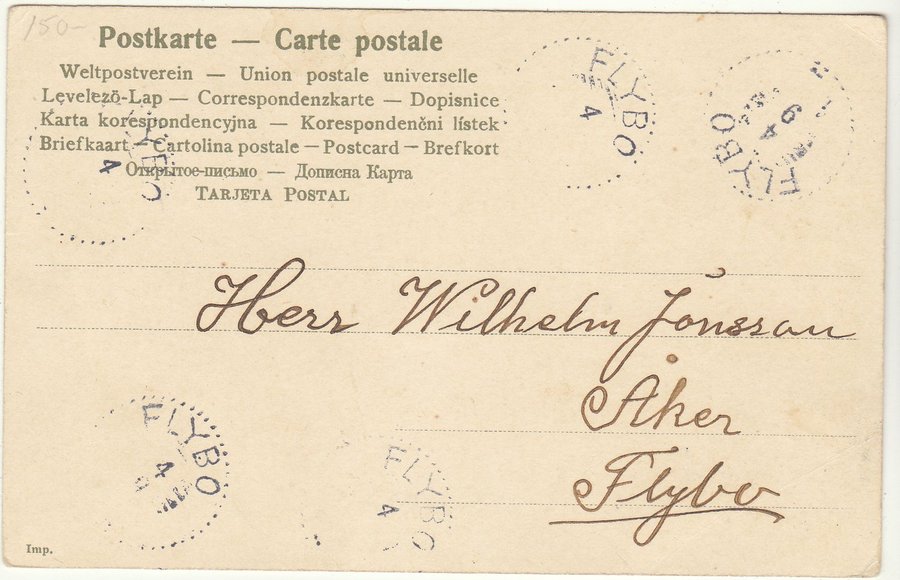 150-
Postkarte — Carte postale
Weltpostverein — Union postale universelle
Levelező-Lap — Correspondenzkarte — Dopisnice
Karta korespondencyjna — Korespondenční lístek
Briefkaart — Cartolina postale — Postcard — Brefkort
Открытое-письмо — Дописна Карта
TARJETA POSTAL
FLYBO
4
FLYBO
4
FLYBO
4
Herr Wilhelm Jonssau
Åker
Flybo
FLYBO
4
FLYBO
4
Imp.